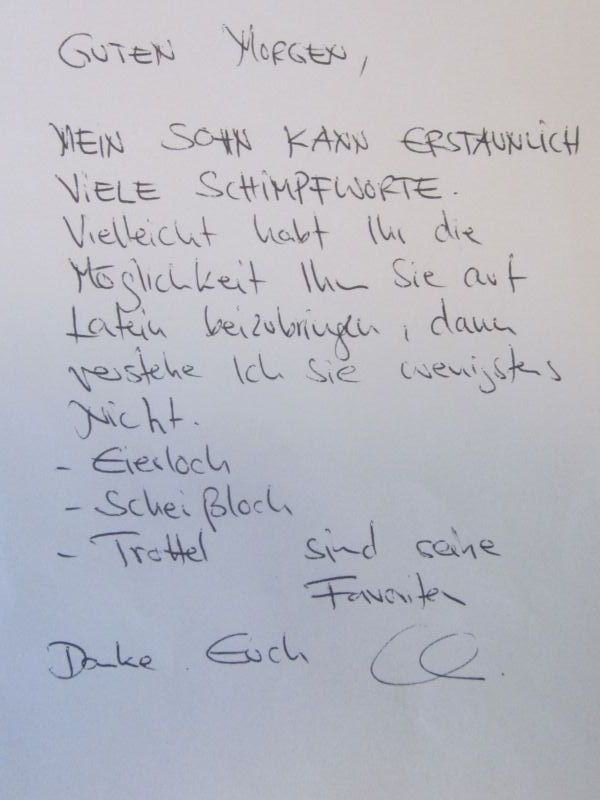 GUTEN MORGEN,
MEIN SOHN KANN ERSTAUNLICH
VIELE SCHIMPFWORTE.
Vielleicht habt Ihr die
Möglichkeit Ihm Sie auf
Latein beizubringen, dann
verstehe Ich Sie wenigstens
Nicht.
- Eierloch
- Scheißloch
- Trottel sind seine
Favoriten
Danke Euch